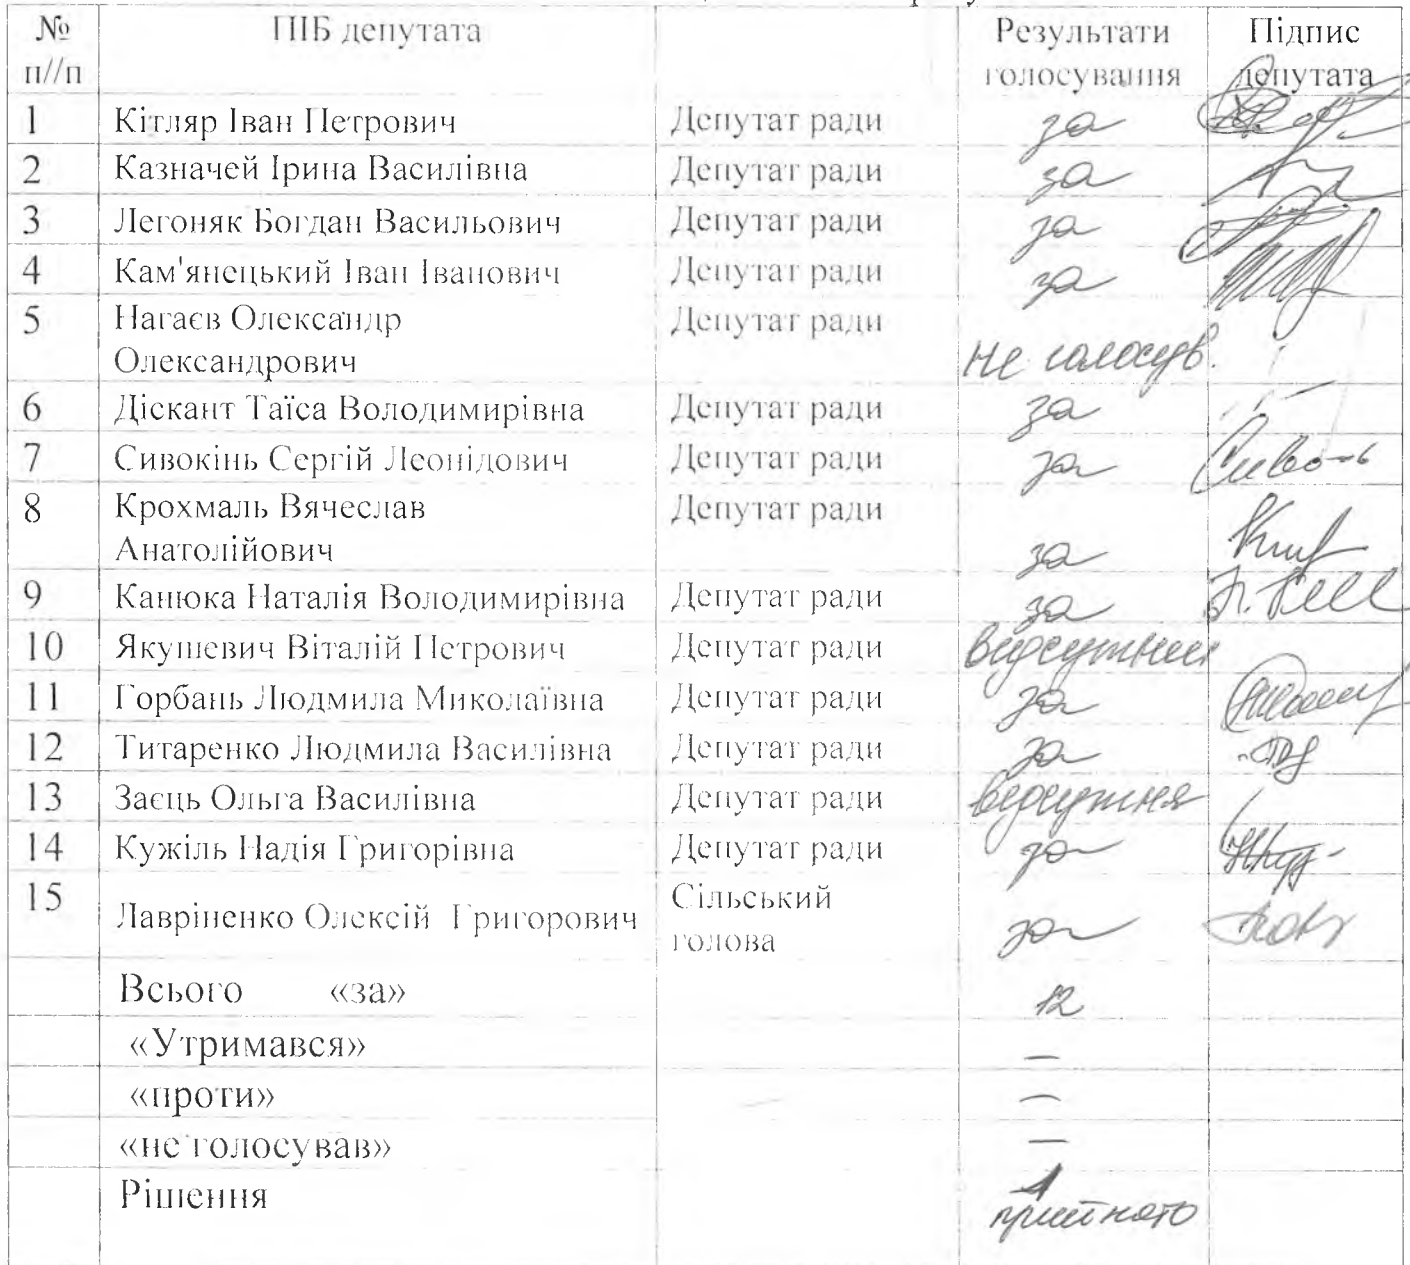 № ПІБ депутата Результати Підпис
п//п голосування депутата
1 Кітляр Іван Петрович Депутат ради за
2 Казначей Ірина Василівна Депутат ради за
3 Легоняк Богдан Васильович Депутат ради за
4 Кам'янецький Іван Іванович Депутат ради за
5 Нагаєв Олександр Депутат ради
Олександрович не голосув.
6 Діскант Таїса Володимирівна Депутат ради за
7 Сивокінь Сергій Леонідович Депутат ради за
8 Крохмаль Вячеслав Депутат ради
Анатолійович за
9 Канюка Наталія Володимирівна Депутат ради за
10 Якушевич Віталій Петрович Депутат ради відсутній
11 Горбань Людмила Миколаївна Депутат ради за
12 Титаренко Людмила Василівна Депутат ради за
13 Заєць Ольга Василівна Депутат ради відсутня
14 Кужіль Надія Григорівна Депутат ради за
15 Сільський
Лавріненко Олексій Григорович голова за
Всього «за» 12
«Утримався» —
«проти» —
«не голосував» —
Рішення 1
прийнято